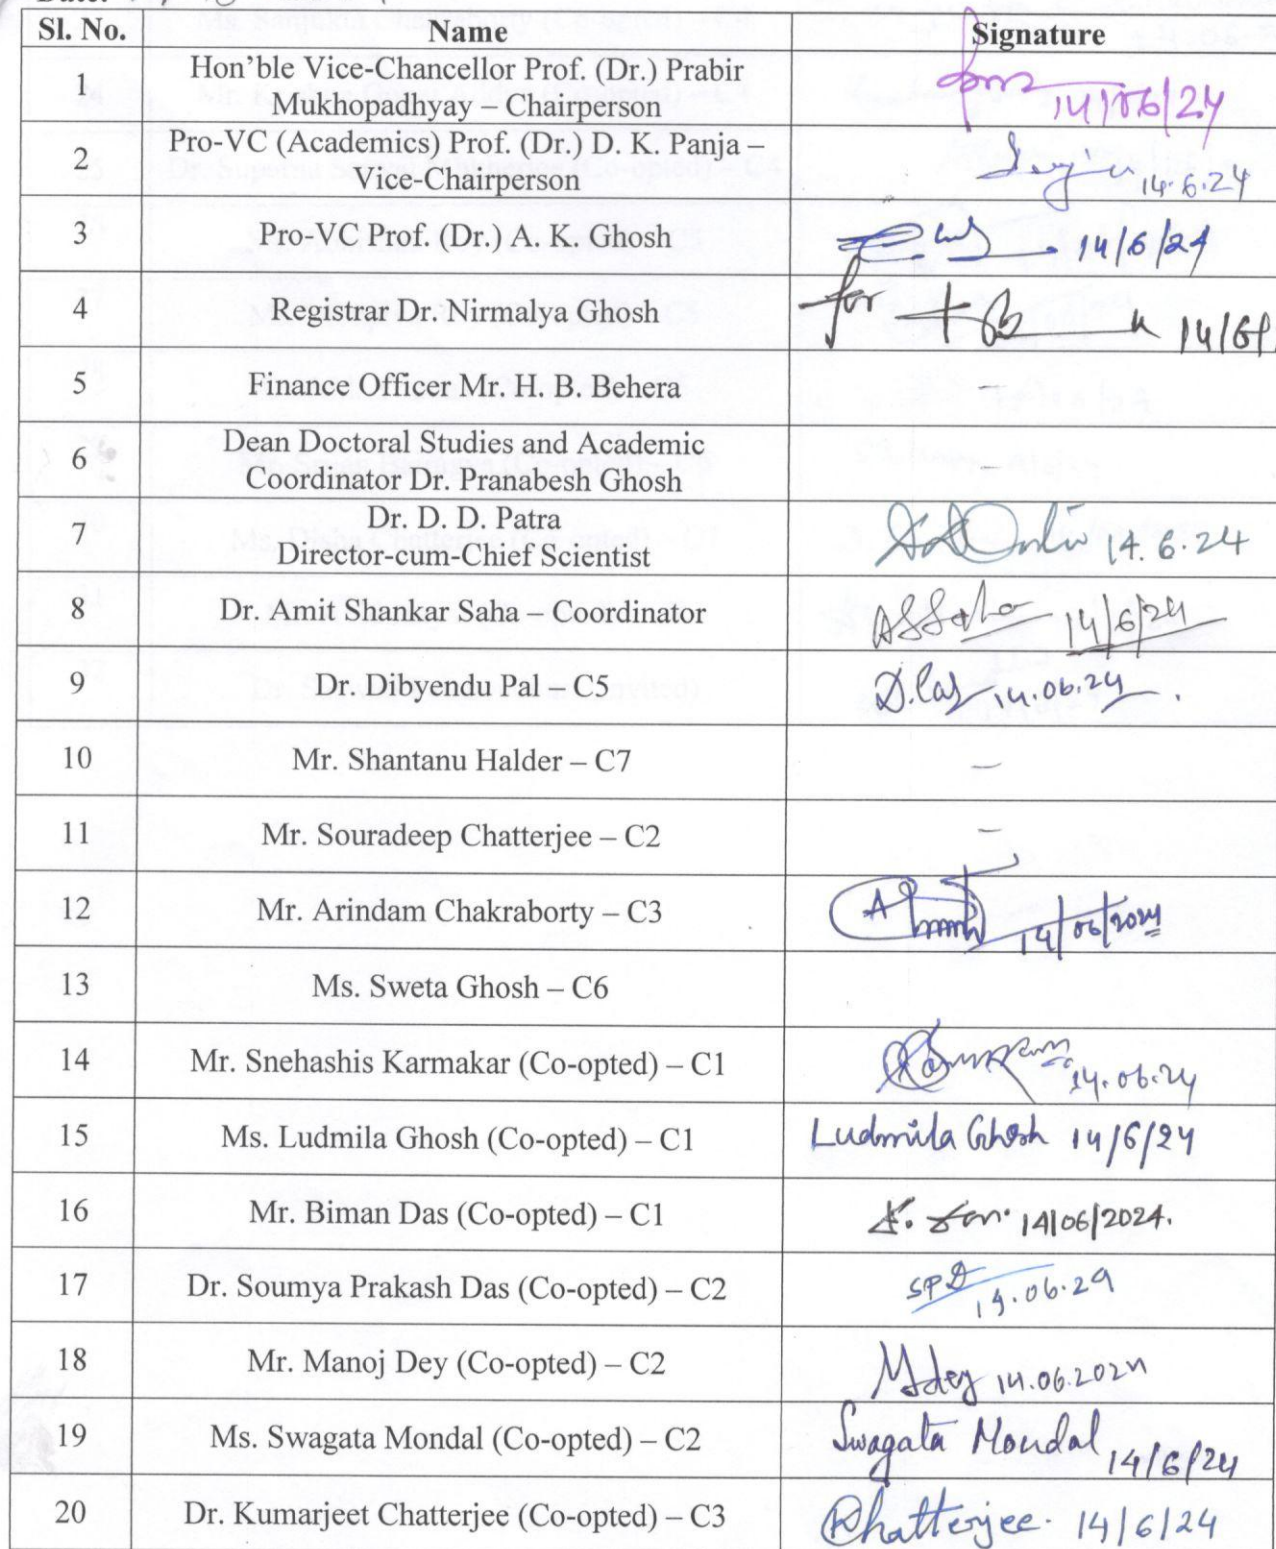 Date:
Sl. No. Name Signature
1 Hon'ble Vice-Chancellor Prof. (Dr.) Prabir
Mukhopadhyay – Chairperson 14/06/24
2 Pro-VC (Academics) Prof. (Dr.) D. K. Panja –
Vice-Chairperson 14.6.24
3 Pro-VC Prof. (Dr.) A. K. Ghosh 14/6/24
4 Registrar Dr. Nirmalya Ghosh for 14/6/
5 Finance Officer Mr. H. B. Behera –
6 Dean Doctoral Studies and Academic
Coordinator Dr. Pranabesh Ghosh
7 Dr. D. D. Patra
Director-cum-Chief Scientist 14.6.24
8 Dr. Amit Shankar Saha – Coordinator ASSaha 14/6/24
9 Dr. Dibyendu Pal – C5 14.06.24
10 Mr. Shantanu Halder – C7 –
11 Mr. Souradeep Chatterjee – C2 –
12 Mr. Arindam Chakraborty – C3 14/06/2024
13 Ms. Sweta Ghosh – C6
14 Mr. Snehashis Karmakar (Co-opted) – C1 14.06.24
15 Ms. Ludmila Ghosh (Co-opted) – C1 Ludmila Ghosh 14/6/24
16 Mr. Biman Das (Co-opted) – C1 14/06/2024.
17 Dr. Soumya Prakash Das (Co-opted) – C2 SPD 14.06.24
18 Mr. Manoj Dey (Co-opted) – C2 MDey 14.06.2024
19 Ms. Swagata Mondal (Co-opted) – C2 Swagata Mondal 14/6/24
20 Dr. Kumarjeet Chatterjee (Co-opted) – C3 KChatterjee. 14/6/24